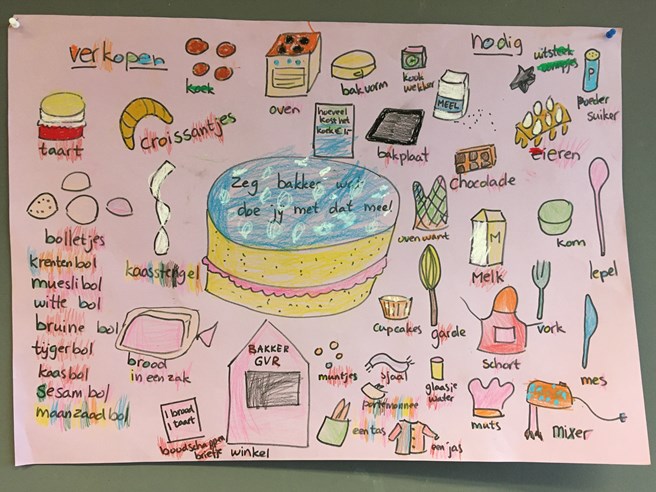 verkopen
nodig
koek
oven
bakvorm
kook
wekker
MEEL
uitsteek
vormpjes
P
poeder
suiker
taart
croissantjes
hoeveel
kost het
koek € 1,-
bakplaat
chocolade
eieren
Zeg bakker wat
doe jij met dat meel
bolletjes
krentenbol
mueslibol
witte bol
bruine bol
tijgerbol
kaasbol
sesambol
maanzaadbol
kaasstengel
ovenwant
M
Melk
kom
lepel
cupcakes
garde
schort
vork
mes
brood
in een zak
BAKKER
GVR
winkel
muntjes
sjaal
glaasje
water
portemonnee
een tas
een jas
muts
mixer
1 brood
1 taart
boodschappen
briefje